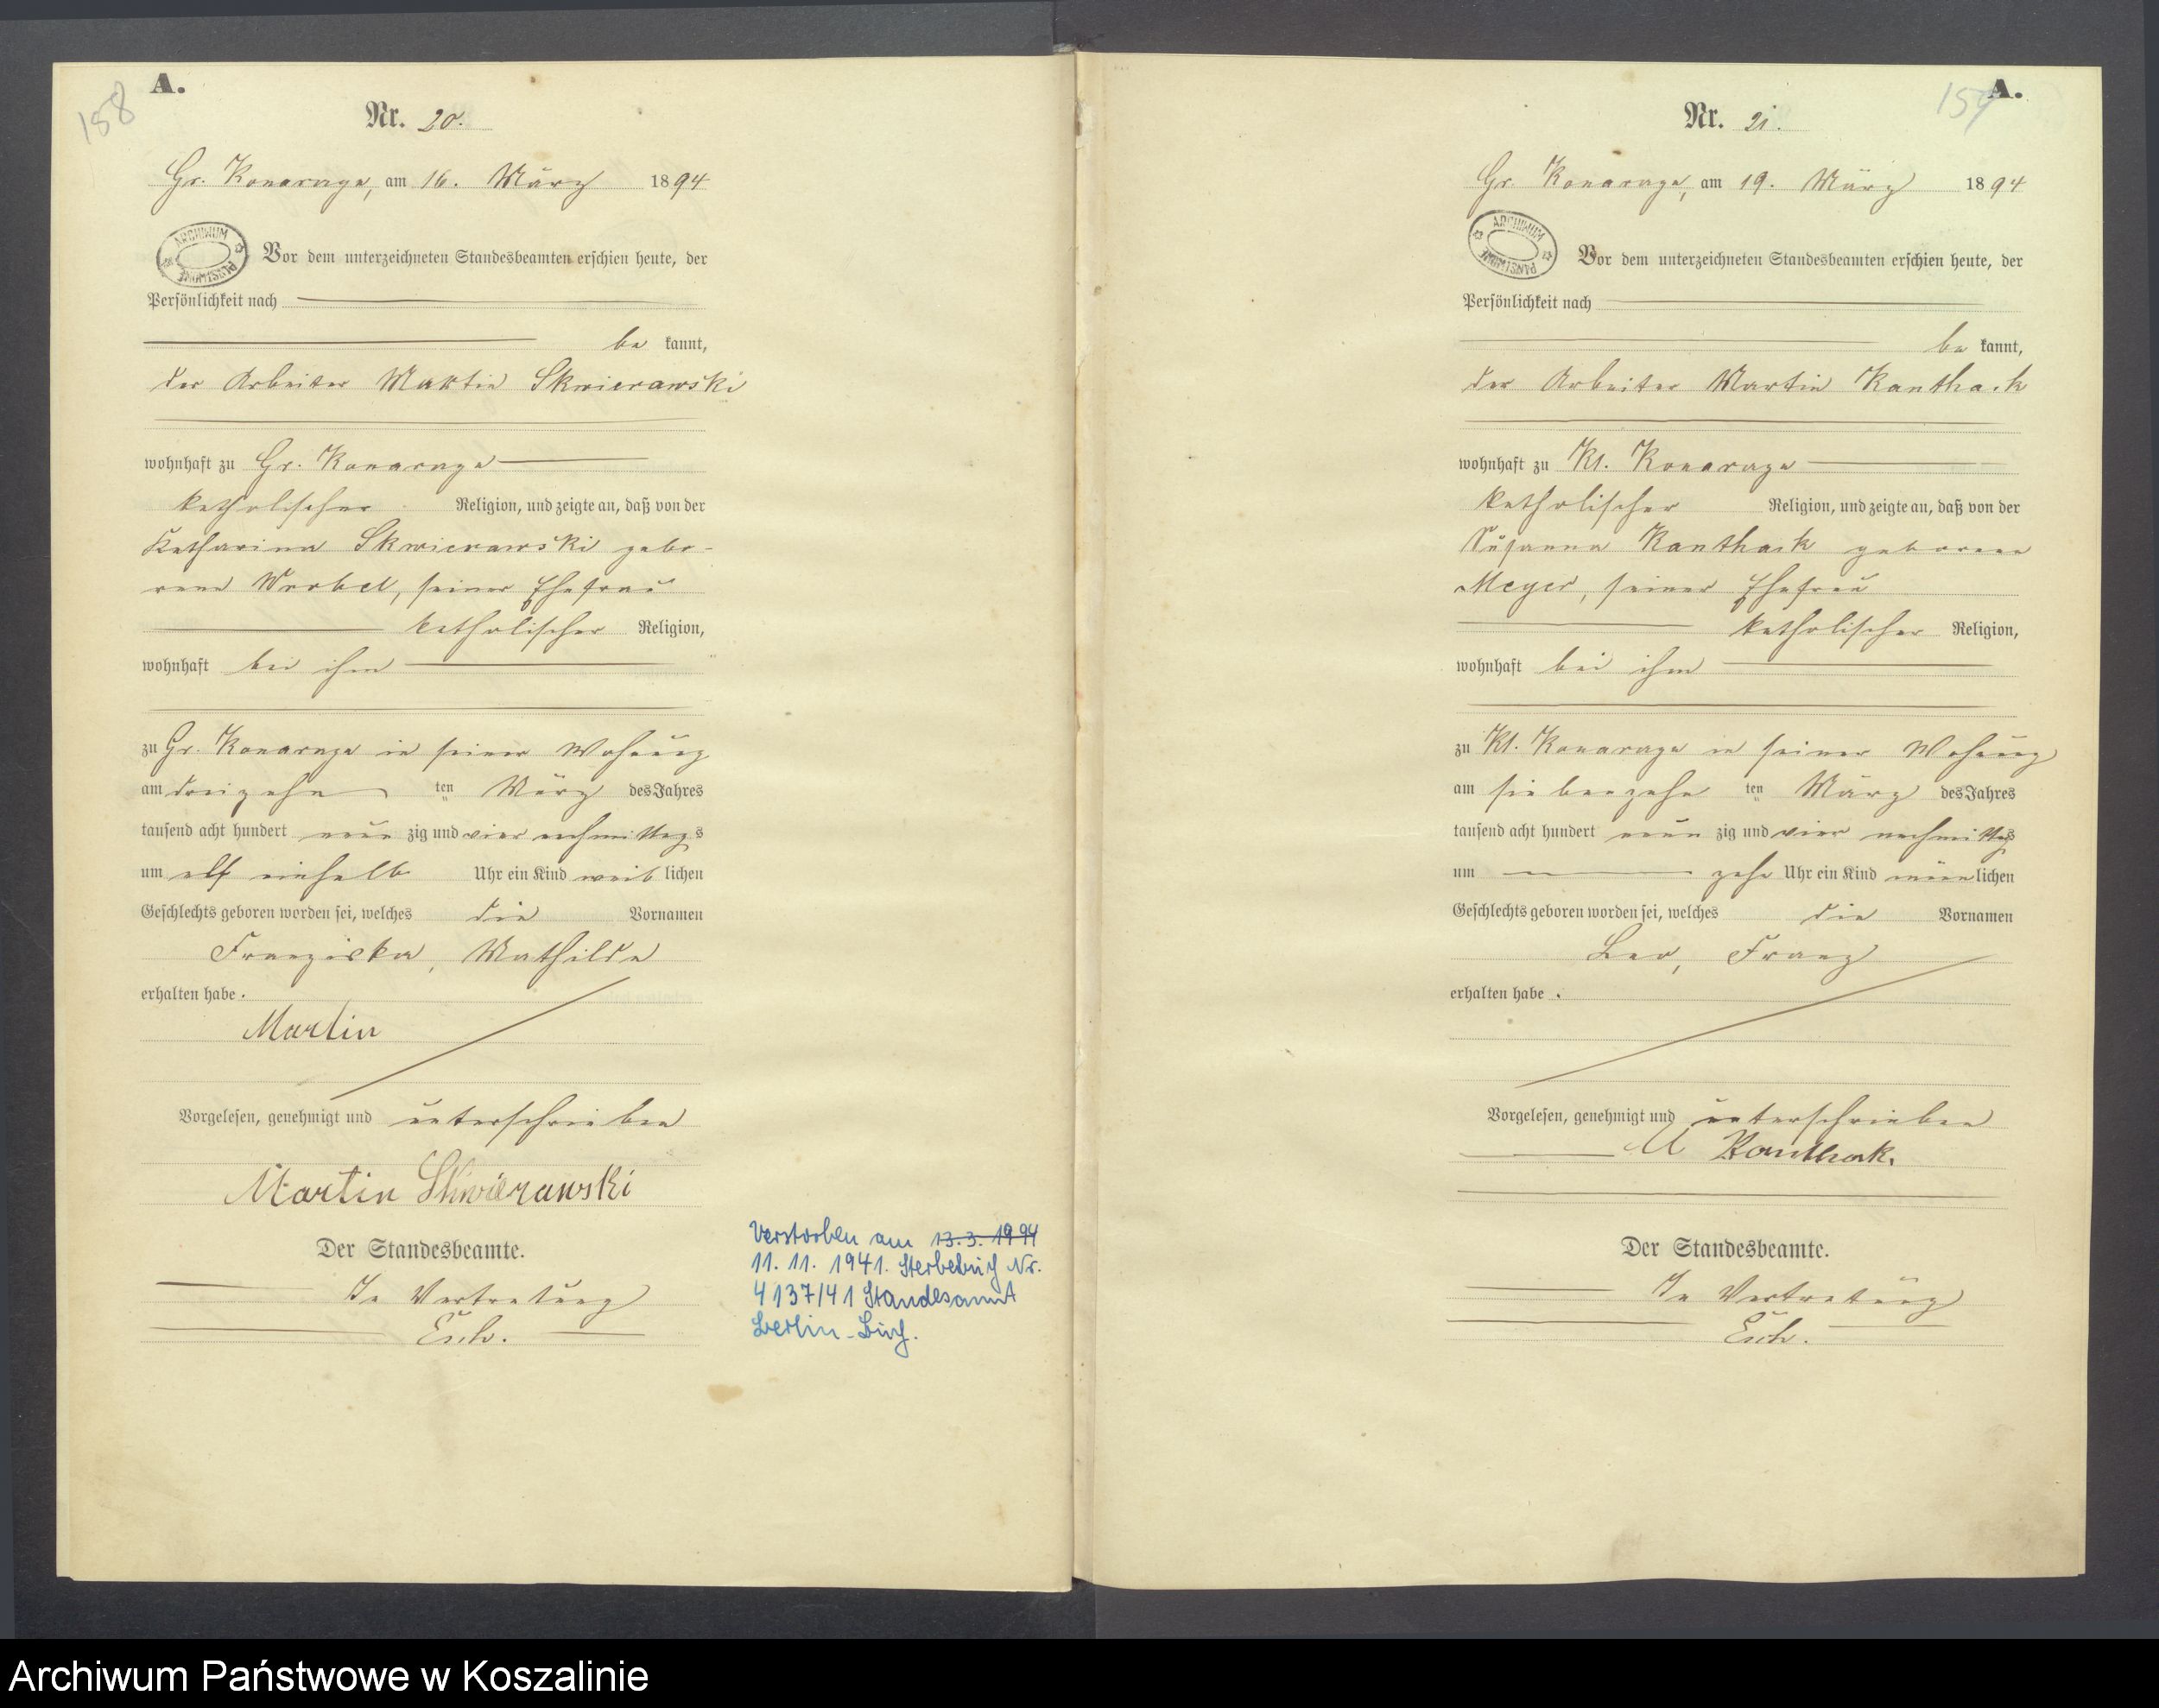 158
A.
Nr. 20.
Gr. Konarzyn, am 16. März 1894
ARCHIWUM PAŃSTWOWE
Vor dem unterzeichneten Standesbeamten erschien heute, der
Persönlichkeit nach
be kannt,
der Arbeiter Martin Skwierawski
wohnhaft zu Gr. Konarzyn
katholischer Religion, und zeigte an, daß von der
Katharina Skwierawski gebo-
rene Wrobel, seiner Ehefrau
katholischer Religion,
wohnhaft bei ihm
zu Gr. Konarzyn in seiner Wohnung
am dreizehn ten März des Jahres
tausend acht hundert neun zig und vier nachmittags
um elf einhalb Uhr ein Kind weib lichen
Geschlechts geboren worden sei, welches die Vornamen
Franziska, Mathilde
erhalten habe.
Martin
Vorgelesen, genehmigt und unterschrieben
Martin Skwierawski
Der Standesbeamte.
In Vertretung
Verstorben am 13.3.1994
11.11.1941. Sterbebuch Nr.
4137/41 Standesamt
Berlin-Buch.
159
A.
Nr. 21.
Gr. Konarzyn, am 19. März 1894
ARCHIWUM PAŃSTWOWE
Vor dem unterzeichneten Standesbeamten erschien heute, der
Persönlichkeit nach
be kannt,
der Arbeiter Martin Kanthack
wohnhaft zu Kl. Konarzyn
katholischer Religion, und zeigte an, daß von der
Susanna Kanthack geborene
Meyer, seiner Ehefrau
katholischer Religion,
wohnhaft bei ihm
zu Kl. Konarzyn in seiner Wohnung
am siebenzehn ten März des Jahres
tausend acht hundert neun zig und vier nachmittags
um zehn Uhr ein Kind männ lichen
Geschlechts geboren worden sei, welches die Vornamen
Leo, Franz
erhalten habe.
Vorgelesen, genehmigt und unterschrieben
M Kanthak.
Der Standesbeamte.
In Vertretung
Archiwum Państwowe w Koszalinie